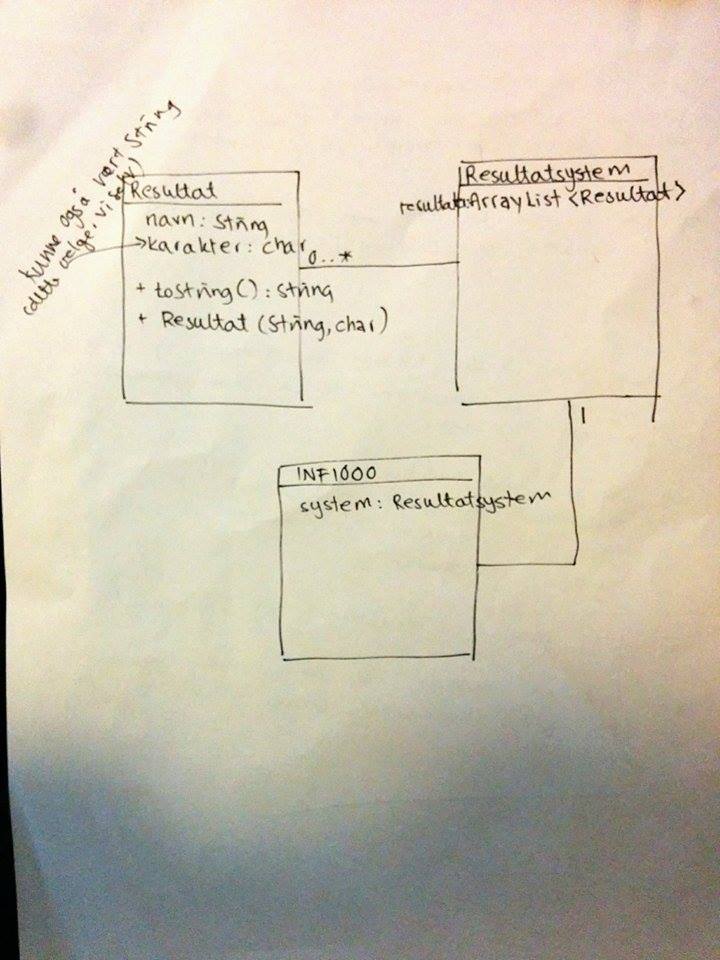 kunne også vært String
(dette velger vi selv)
Resultat
navn: String
karakter: char
+ toString(): String
+ Resultat (String, char)
0..*
Resultatsystem
resultater: ArrayList <Resultat>
1
INF1000
system: Resultatsystem